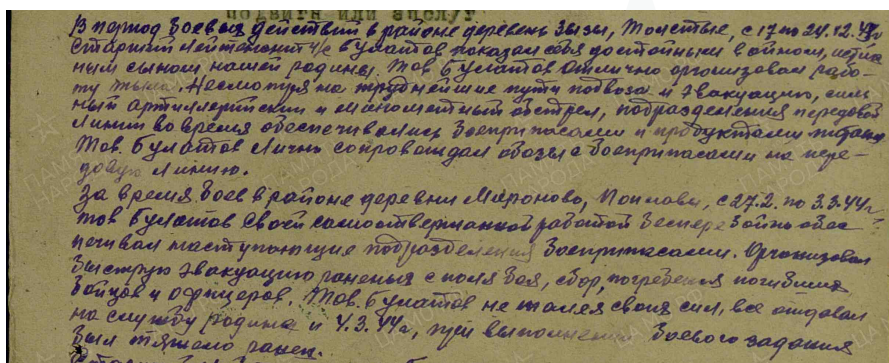 подвига или заслуг
В период боевых действий в районе деревень Зызы, Толстые, с 17 по 24.12.43г
старший лейтенант и/с Булатов показал себя достойным воином, истин
ным сыном нашей родины. Тов Булатов отлично организовал рабо-
ту тыла. Несмотря на труднейшие пути подвоза и эвакуацию, силь
ный артиллерийский и минометный обстрел, подразделения передовой
линии вовремя обеспечивались боеприпасами и продуктами питания
Тов. Булатов лично сопровождал обозы с боеприпасами на пере-
довую линию.
За время боев в районе деревни Мироново, с 27.2. по 3.3.44г.
тов Булатов своей самоотверженной работой бесперебойно обес
печивал наступающие подразделения боеприпасами. Организовал
быструю эвакуацию раненых с поля боя, сбор, погребения погибших
бойцов и офицеров. Тов. Булатов не жалея своих сил, все отдавал
на службу родине и 4.3.44г, при выполнении боевого задания
был тяжело ранен.